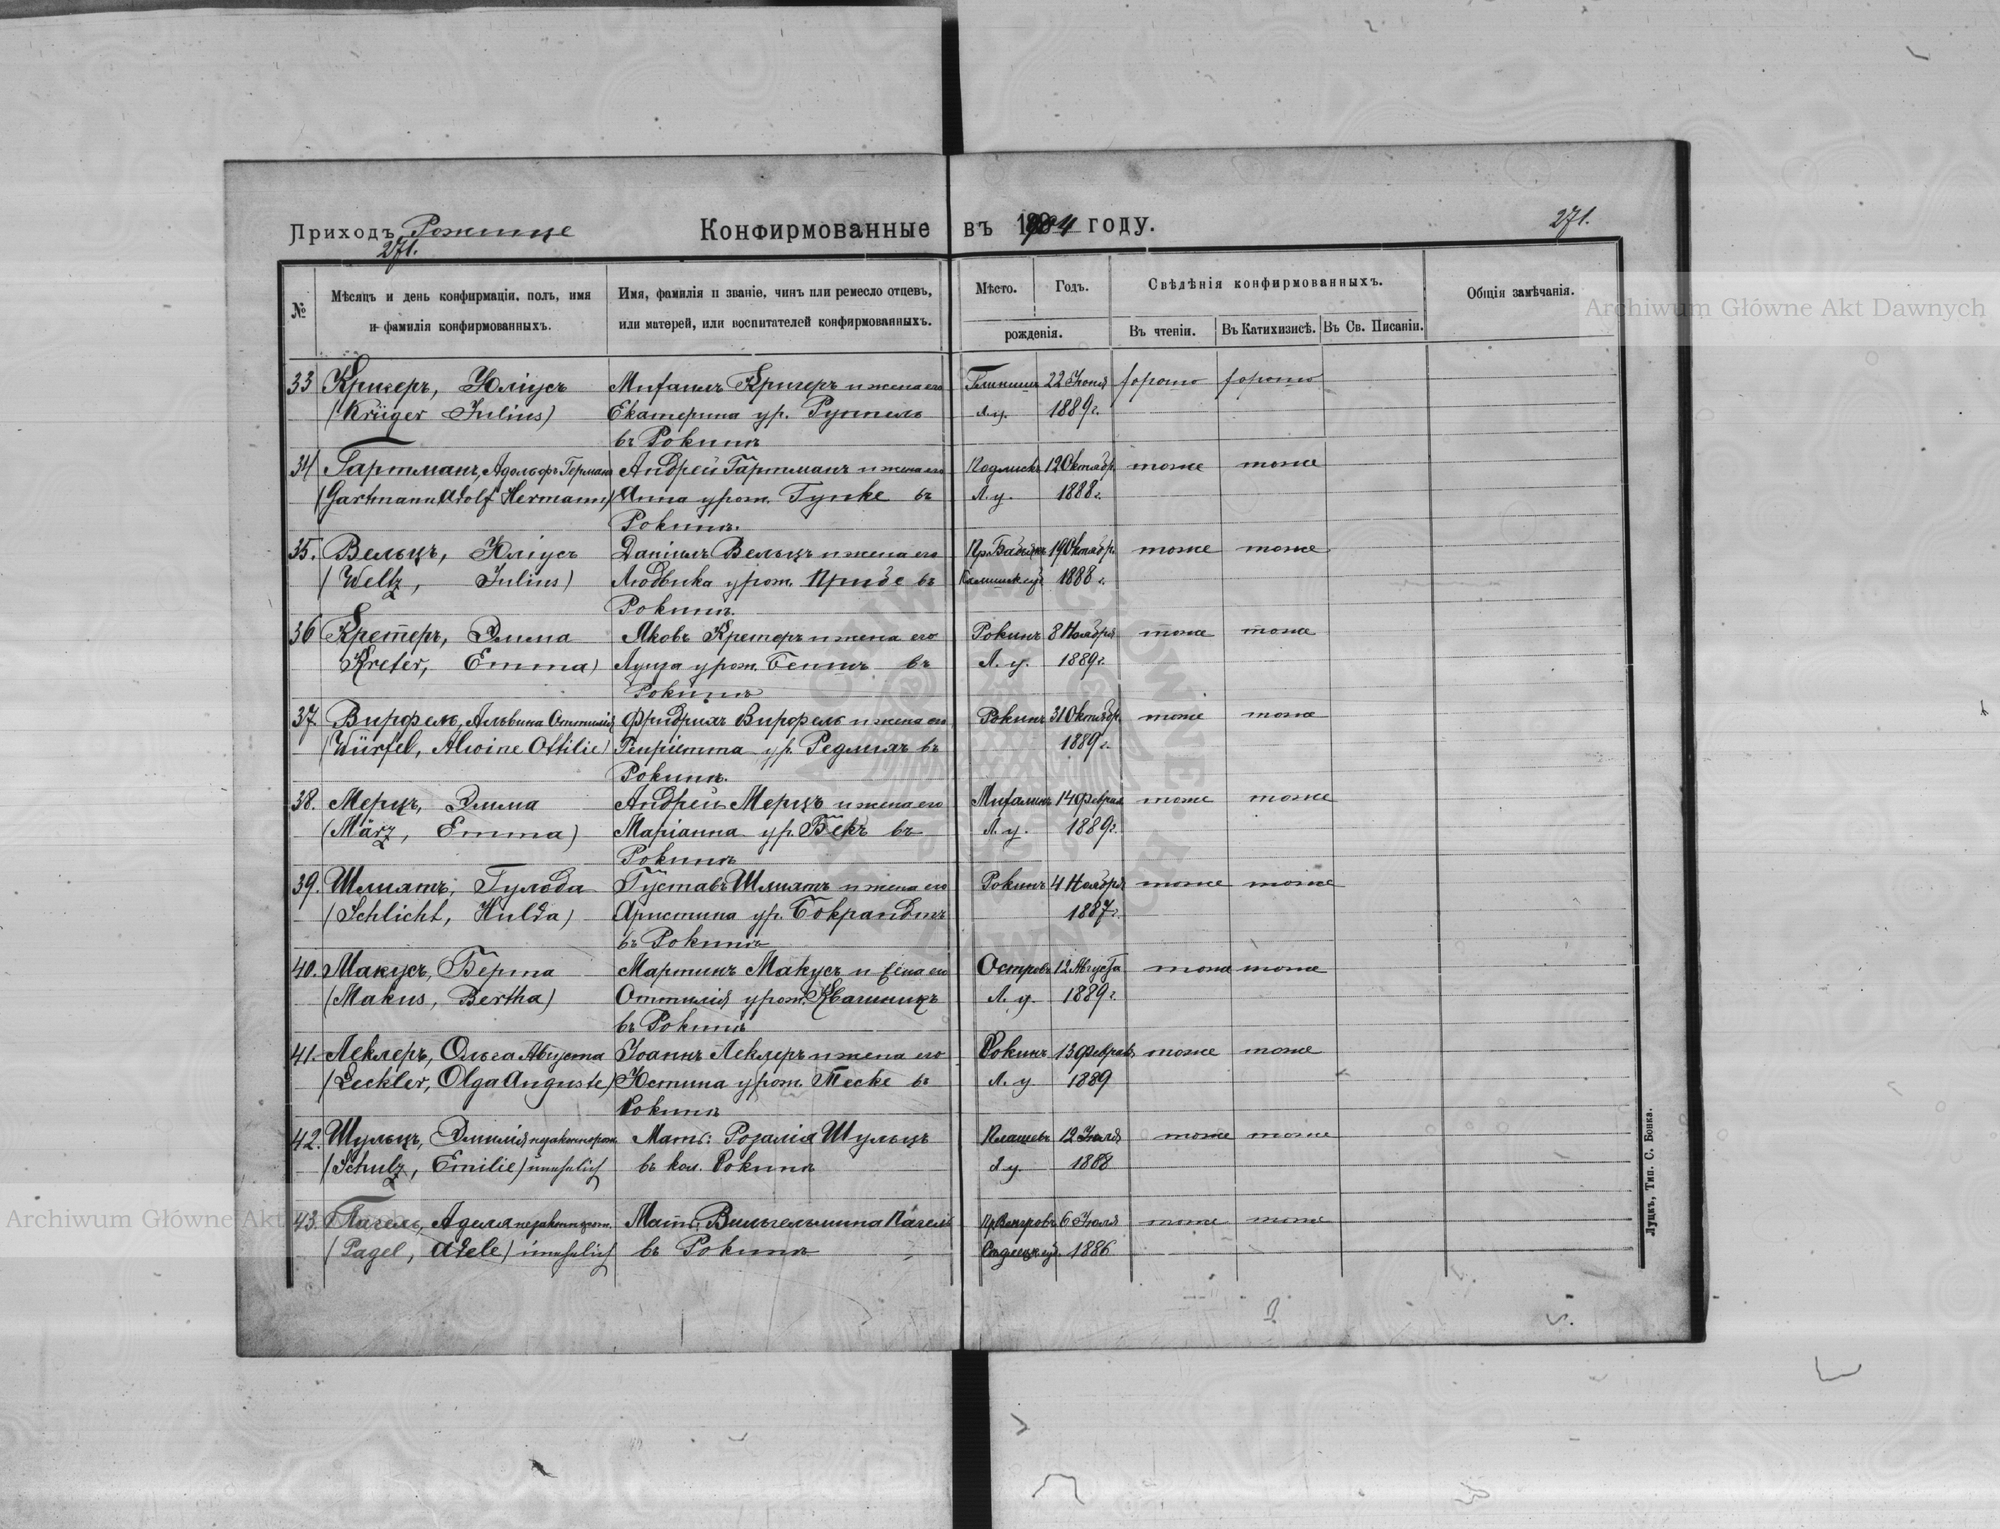 Приходъ Рожище
Конфирмованные въ 1904 году.
271.
271.
№
Мѣсяцъ и день конфирмаціи, полъ, имя
и фамилія конфирмованныхъ.
Имя, фамилія и званіе, чинъ или ремесло отцевъ,
или матерей, или воспитателей конфирмованныхъ.
Мѣсто.
Годъ.
рожденія.
Свѣдѣнія конфирмованныхъ.
Въ чтеніи.
Въ Катихизисѣ.
Въ Св. Писаніи.
Общія замѣчанія.
Archiwum Główne Akt Dawnych
33 Кригеръ, Юліусъ Михаилъ Кригеръ и жена его 22 Іюня хорошо хорошо
(Krüger Julius) Екатерина ур. л.у. 1889г.
въ Рокинъ
34 Гартманъ, Адольфъ Германъ Андрей Гартманъ и жена его 12 Октябр. тоже тоже
(Gartmann Adolf Hermann) Анна урож. Гупке въ Л.у. 1888г.
Рокинъ.
35. Вельцъ, Юліусъ Даніилъ Вельцъ и жена его 19 Октябр. тоже тоже
(Weltz, Julius) Людвика урож. Приве въ 1888г.
Рокинъ.
36 Кретеръ, Эмма Яковъ Кретеръ и жена его Рокинъ 8 Ноября тоже тоже
Kreter, Emma) Луиза урож. въ Л.у. 1889г.
Рокинъ
37 Вирфель, Альвина Оттилія Фридрихъ Вирфель и жена его Рокинъ 31 Октябр. тоже тоже
(Würfel, Alwine Ottilie) Генріетта ур. Редлихъ въ 1889г.
Рокинъ.
38. Мерцъ, Эмма Андрей Мерцъ и жена его Михалинъ 14 Феврал. тоже тоже
(März, Emma) Маріанна ур. Бекъ въ Л.у. 1889г.
Рокинъ
39. Шлихтъ, Гульда Густавъ Шлихтъ и жена его Рокинъ 4 Ноября тоже тоже
(Schlicht, Hulda) Христина ур. Бокрандтъ 1887г.
въ Рокинъ
40. Макусъ, Берта Мартинъ Макусъ и жена его Островъ 12 Августа тоже тоже
(Makus, Bertha) Оттилія урож. Л.у. 1889г.
въ Рокинъ
41. Леклеръ, Ольга Августа Іоаннъ Леклеръ и жена его Рокинъ 13 Феврал. тоже тоже
(Leckler, Olga Auguste) Юстина урож. Теске въ Л.у 1889
Рокинъ
42. Шульцъ, Эмилія незаконнорож. Мать: Розалія Шульцъ 12 Іюля тоже тоже
(Schulz, Emilie) unehelich въ кол. Рокинъ Л.у 1888
43. Пагель, Аделя незаконнорож. Мать: Вильгельмина Пагель Пр. Венгровъ 6 Іюля тоже тоже
(Pagel, Adele) unehelich въ Рокинъ 1886
Луцкъ, Тип. С. Бонка.
Archiwum Główne Akt Dawnych